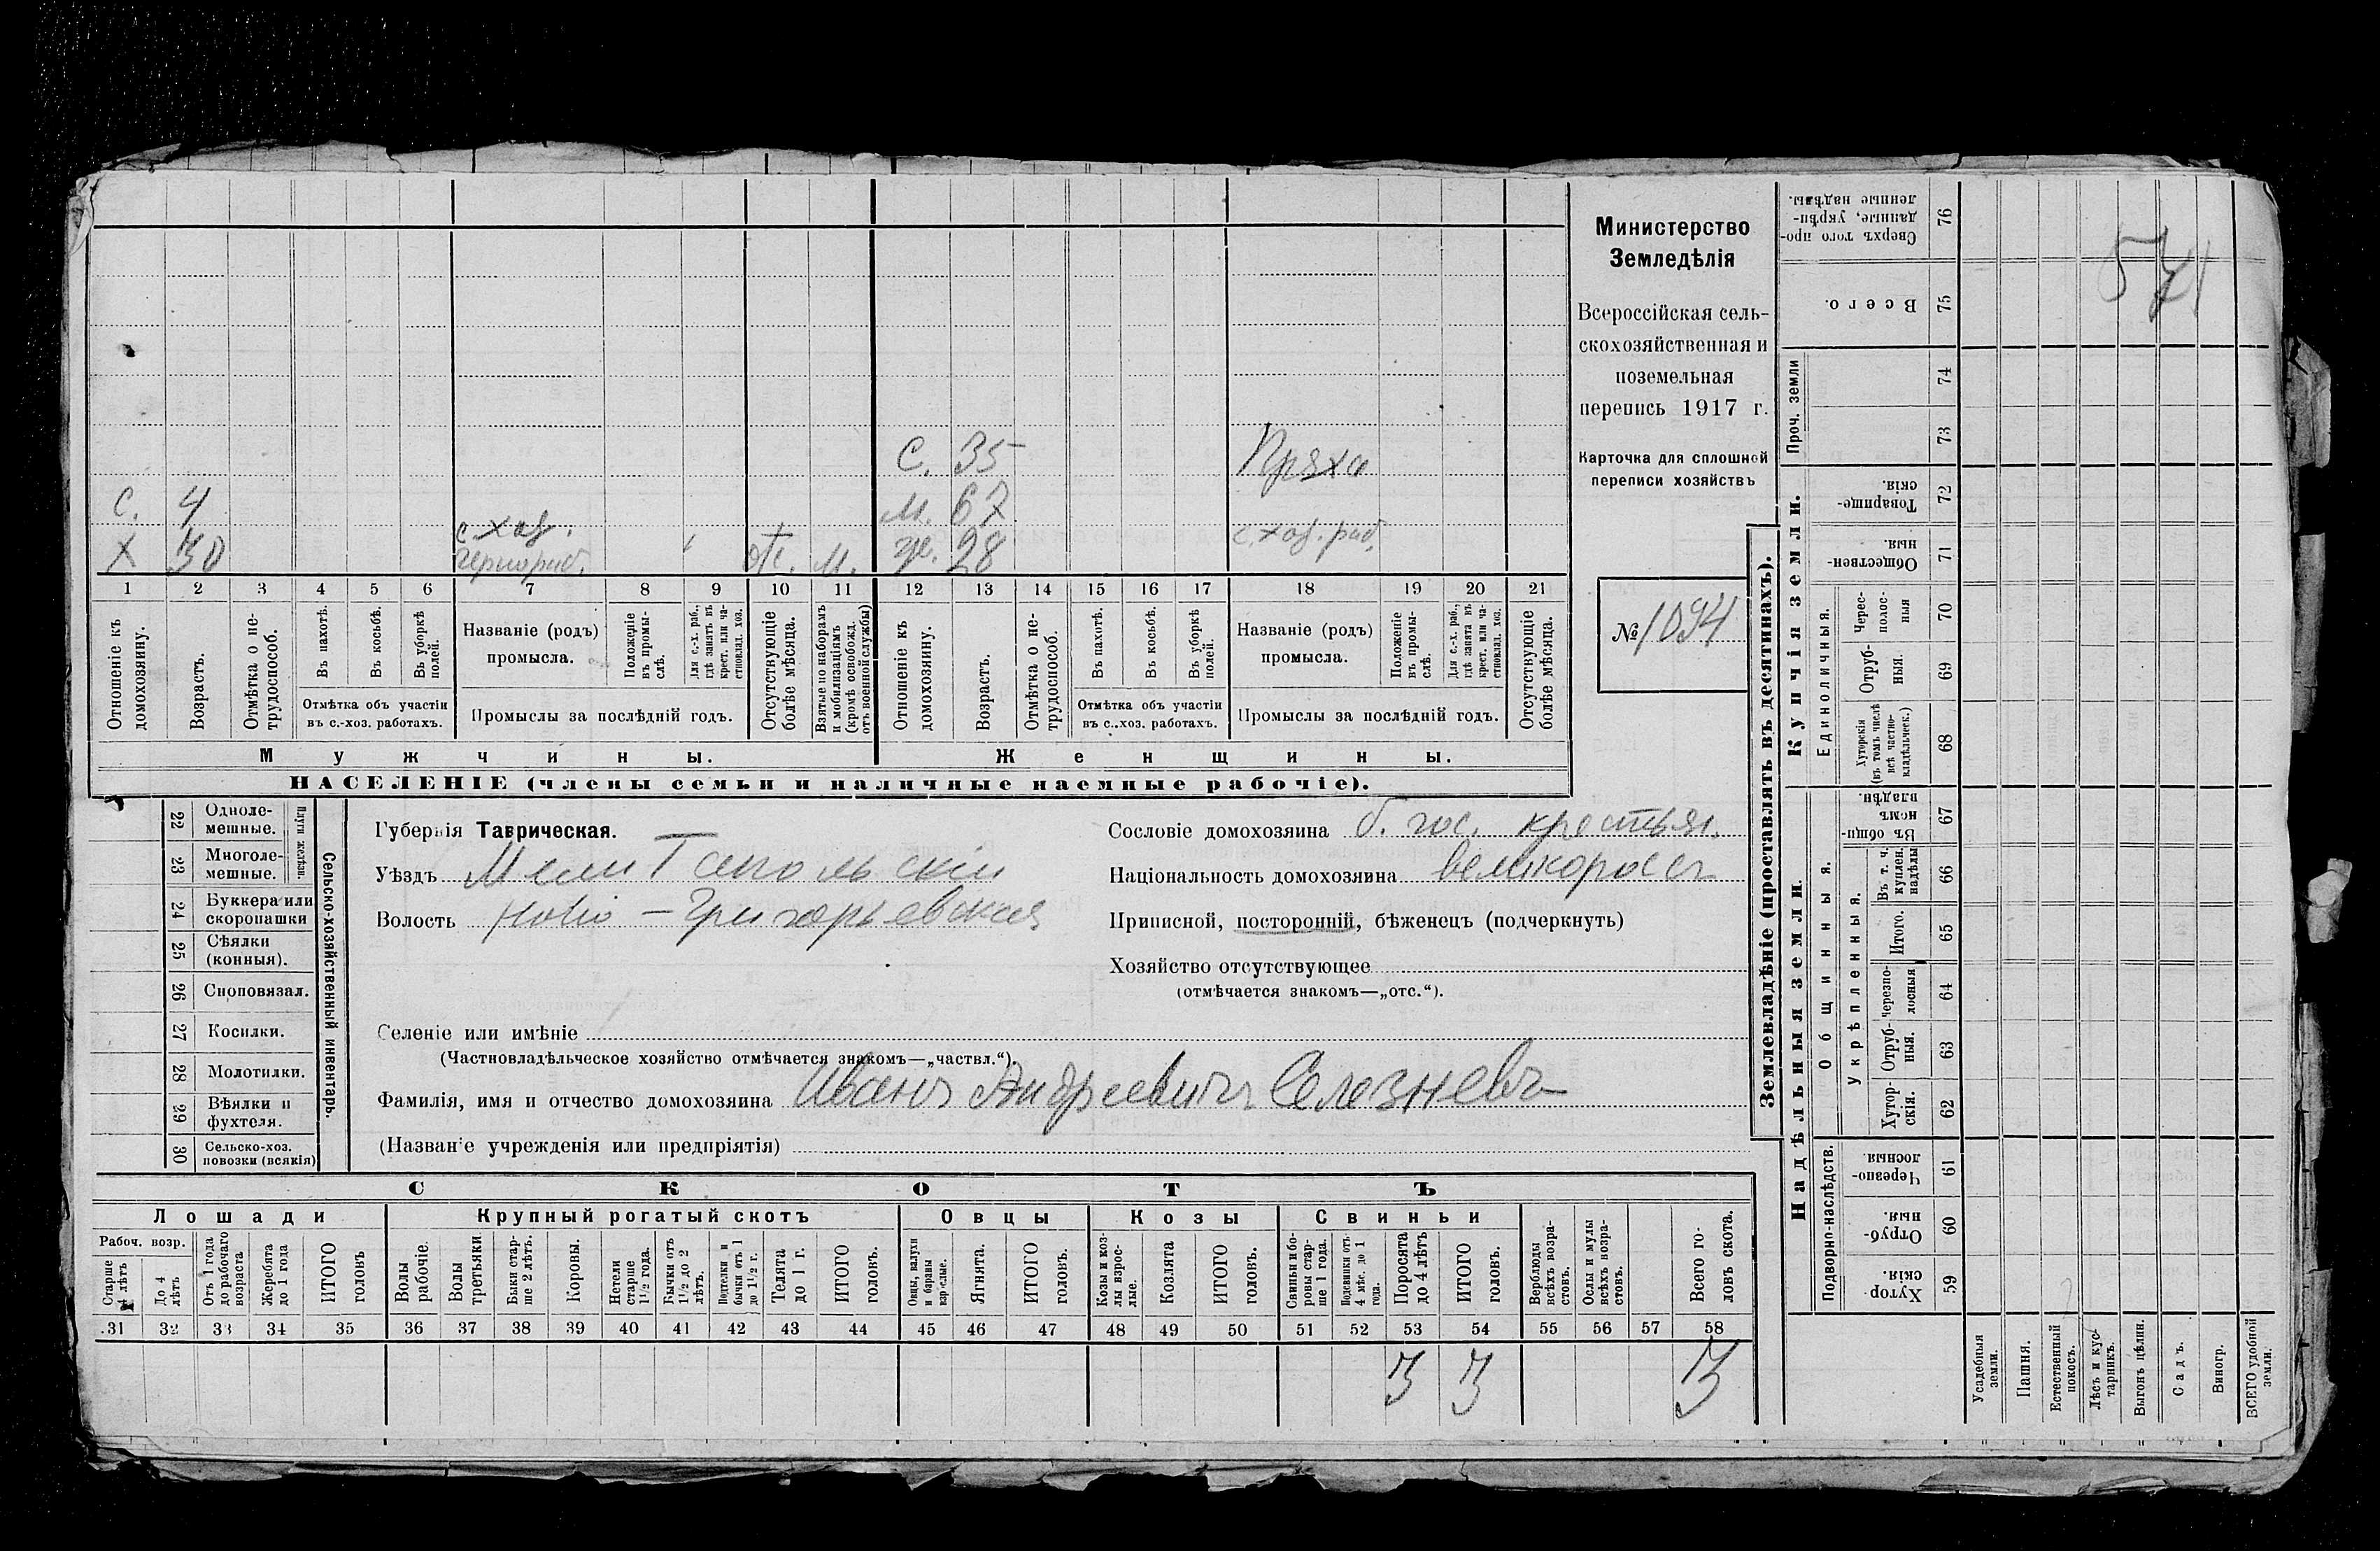 571
Министерство
Земледѣлія
Всероссійская сель-
скохозяйственная и
поземельная
перепись 1917 г.
Карточка для сплошной
переписи хозяйствъ
№ 1094
С. 35 Пряха
С. 4 М. 67
Х 30 с. хоз. чернораб. от. м. ж. 28 с. хоз. раб.
1 2 3 4 5 6 7 8 9 10 11 12 13 14 15 16 17 18 19 20 21
Отношеніе къ домохозяину.
Возрастъ.
Отмѣтка о не-трудоспособ.
Въ пахотѣ.
Въ косьбѣ.
Въ уборкѣ полей.
Отмѣтка объ участіи
въ с.-хоз. работахъ.
Названіе (родъ)
промысла.
Положеніе въ промы-слѣ.
Для с.-х. раб., гдѣ занятъ въ крест. или ча-стновлад. хоз.
Промыслы за послѣдній годъ.
Отсутствующіе болѣе мѣсяца.
Взятые по наборамъ и мобилизаціямъ (кромѣ освобожд. отъ военной службы)
Отношеніе къ домохозяину.
Возрастъ.
Отмѣтка о не-трудоспособ.
Въ пахотѣ.
Въ косьбѣ.
Въ уборкѣ полей.
Отмѣтка объ участіи
въ с..хоз. работахъ.
Названіе (родъ)
промысла.
Положеніе въ промы-слѣ.
Для с.-х. раб., гдѣ занята въ крест. или ча-стновлад. хоз.
Промыслы за послѣдній годъ.
Отсутствующіе болѣе мѣсяца.
Мужчины.
Женщины.
НАСЕЛЕНІЕ (члены семьи и наличные наемные рабочіе).
Сельско-хозяйственный инвентарь.
Плуги желѣзн.
22 Одноле-мешные.
23 Многоле-мешные.
24 Буккера или скоропашки
25 Сѣялки (конныя).
26 Сноповязал.
27 Косилки.
28 Молотилки.
29 Вѣялки и фухтеля.
30 Сельско-хоз. повозки (всякія)
Губернія Таврическая.
Уѣздъ Мелитопольскій
Волость Ново-Григорьевская
Сословіе домохозяина б. гос. крестьян.
Національность домохозяина великороссъ
Приписной, посторонній, бѣженецъ (подчеркнуть)
Хозяйство отсутствующее
(отмѣчается знакомъ—„отс.“).
Селеніе или имѣніе
(Частновладѣльческое хозяйство отмѣчается знакомъ—„частвл.“).
Фамилія, имя и отчество домохозяина Иванъ Андреевичъ Селезневъ
(Названіе учрежденія или предпріятія)
СКОТЪ
Лошади
Крупный рогатый скотъ
Овцы
Козы
Свиньи
Рабоч. возр.
Старше 4 лѣтъ
До 4 лѣтъ
Отъ 1 года до рабочаго возраста
Жеребята до 1 года
ИТОГО головъ
Волы рабочіе.
Волы третьяки.
Быки стар-ше 2 лѣтъ.
Коровы.
Нетели старше 1½ года.
Бычки отъ 1½ до 2 лѣтъ.
Подтелки и бычки отъ 1 до 1½ г.
Телята до 1 г.
ИТОГО головъ.
Овцы, валухи и бараны взрослые.
Ягнята.
ИТОГО головъ.
Козы и коз-лы взрос-лые.
Козлята
ИТОГО головъ.
Свиньи и бо-ровы стар-ше 1 года.
Подсвинки отъ 4 мѣс. до 1 года.
Поросята до 4 лѣтъ
ИТОГО головъ.
Верблюды всѣхъ возра-стовъ.
Ослы и мулы всѣхъ возра-стовъ.
Всего го-ловъ скота.
31 32 33 34 35 36 37 38 39 40 41 42 43 44 45 46 47 48 49 50 51 52 53 54 55 56 57 58
3 3 3
Землевладѣніе (проставлять въ десятинахъ).
Купчія земли.
Надѣльныя земли.
Сверхъ того про-данные, укрѣп-ленные надѣлы. 76
Всего. 75
Проч. земли
74
73
Товарище-скія. 72
Обществен-ныя. 71
Единоличныя.
Черес-полос-ныя 70
Отруб-ныя. 69
Хуторскія (въ томъ числѣ всѣ частно-владѣльческ.) 68
Общинныя.
Въ общи-номъ владѣн. 67
Укрѣпленныя.
Въ т. ч. куплен. надѣлы 66
Итого. 65
Черезпо-лосныя 64
Отруб-ныя. 63
Хутор-скія. 62
Подворно-наслѣдств.
Черезпо-лосныя. 61
Отруб-ныя. 60
Хутор-скія. 59
Усадебныя земли.
Пашня.
Естественный покосъ.
Лѣсъ и кус-тарникъ.
Выгонъ цѣлин.
Садъ.
Виногр.
ВСЕГО удобной земли.